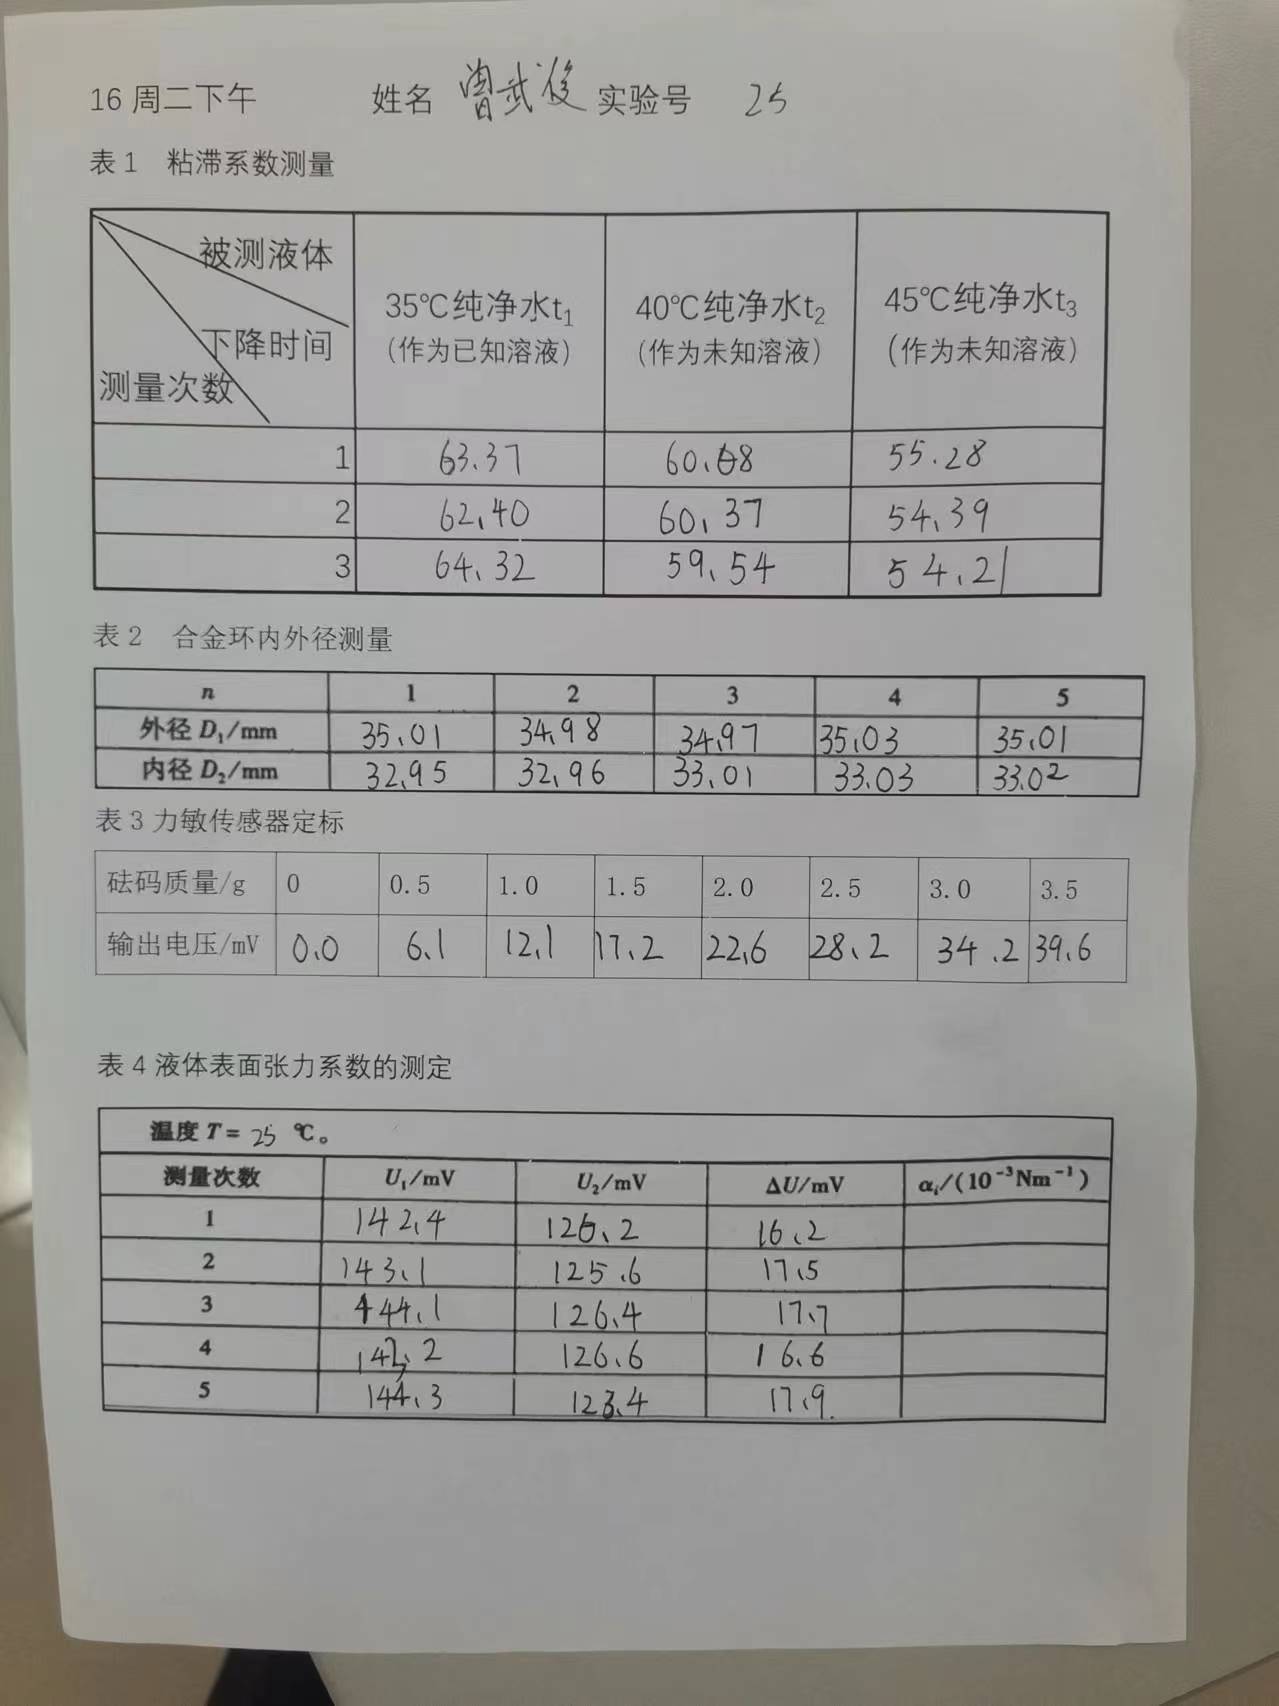 16 周二下午 姓名 曾武俊 实验号 25
表 1 粘滞系数测量
被测液体
下降时间
测量次数
35℃纯净水t₁ (作为已知溶液) 40℃纯净水t₂ (作为未知溶液) 45℃纯净水t₃ (作为未知溶液)
1 63.37 60.68 55.28
2 62.40 60.37 54.39
3 64.32 59.54 54.21
表 2 合金环内外径测量
n 1 2 3 4 5
外径 D₁/mm 35.01 34.98 34.97 35.03 35.01
内径 D₂/mm 32.95 32.96 33.01 33.03 33.02
表 3 力敏传感器定标
砝码质量/g 0 0.5 1.0 1.5 2.0 2.5 3.0 3.5
输出电压/mV 0.0 6.1 12.1 17.2 22.6 28.2 34.2 39.6
表 4 液体表面张力系数的测定
温度 T = 25 ℃。
测量次数 U₁/mV U₂/mV ΔU/mV αᵢ/(10⁻³Nm⁻¹)
1 142.4 126.2 16.2
2 143.1 125.6 17.5
3 144.1 126.4 17.7
4 126.6 16.6
5 144.3 17.9